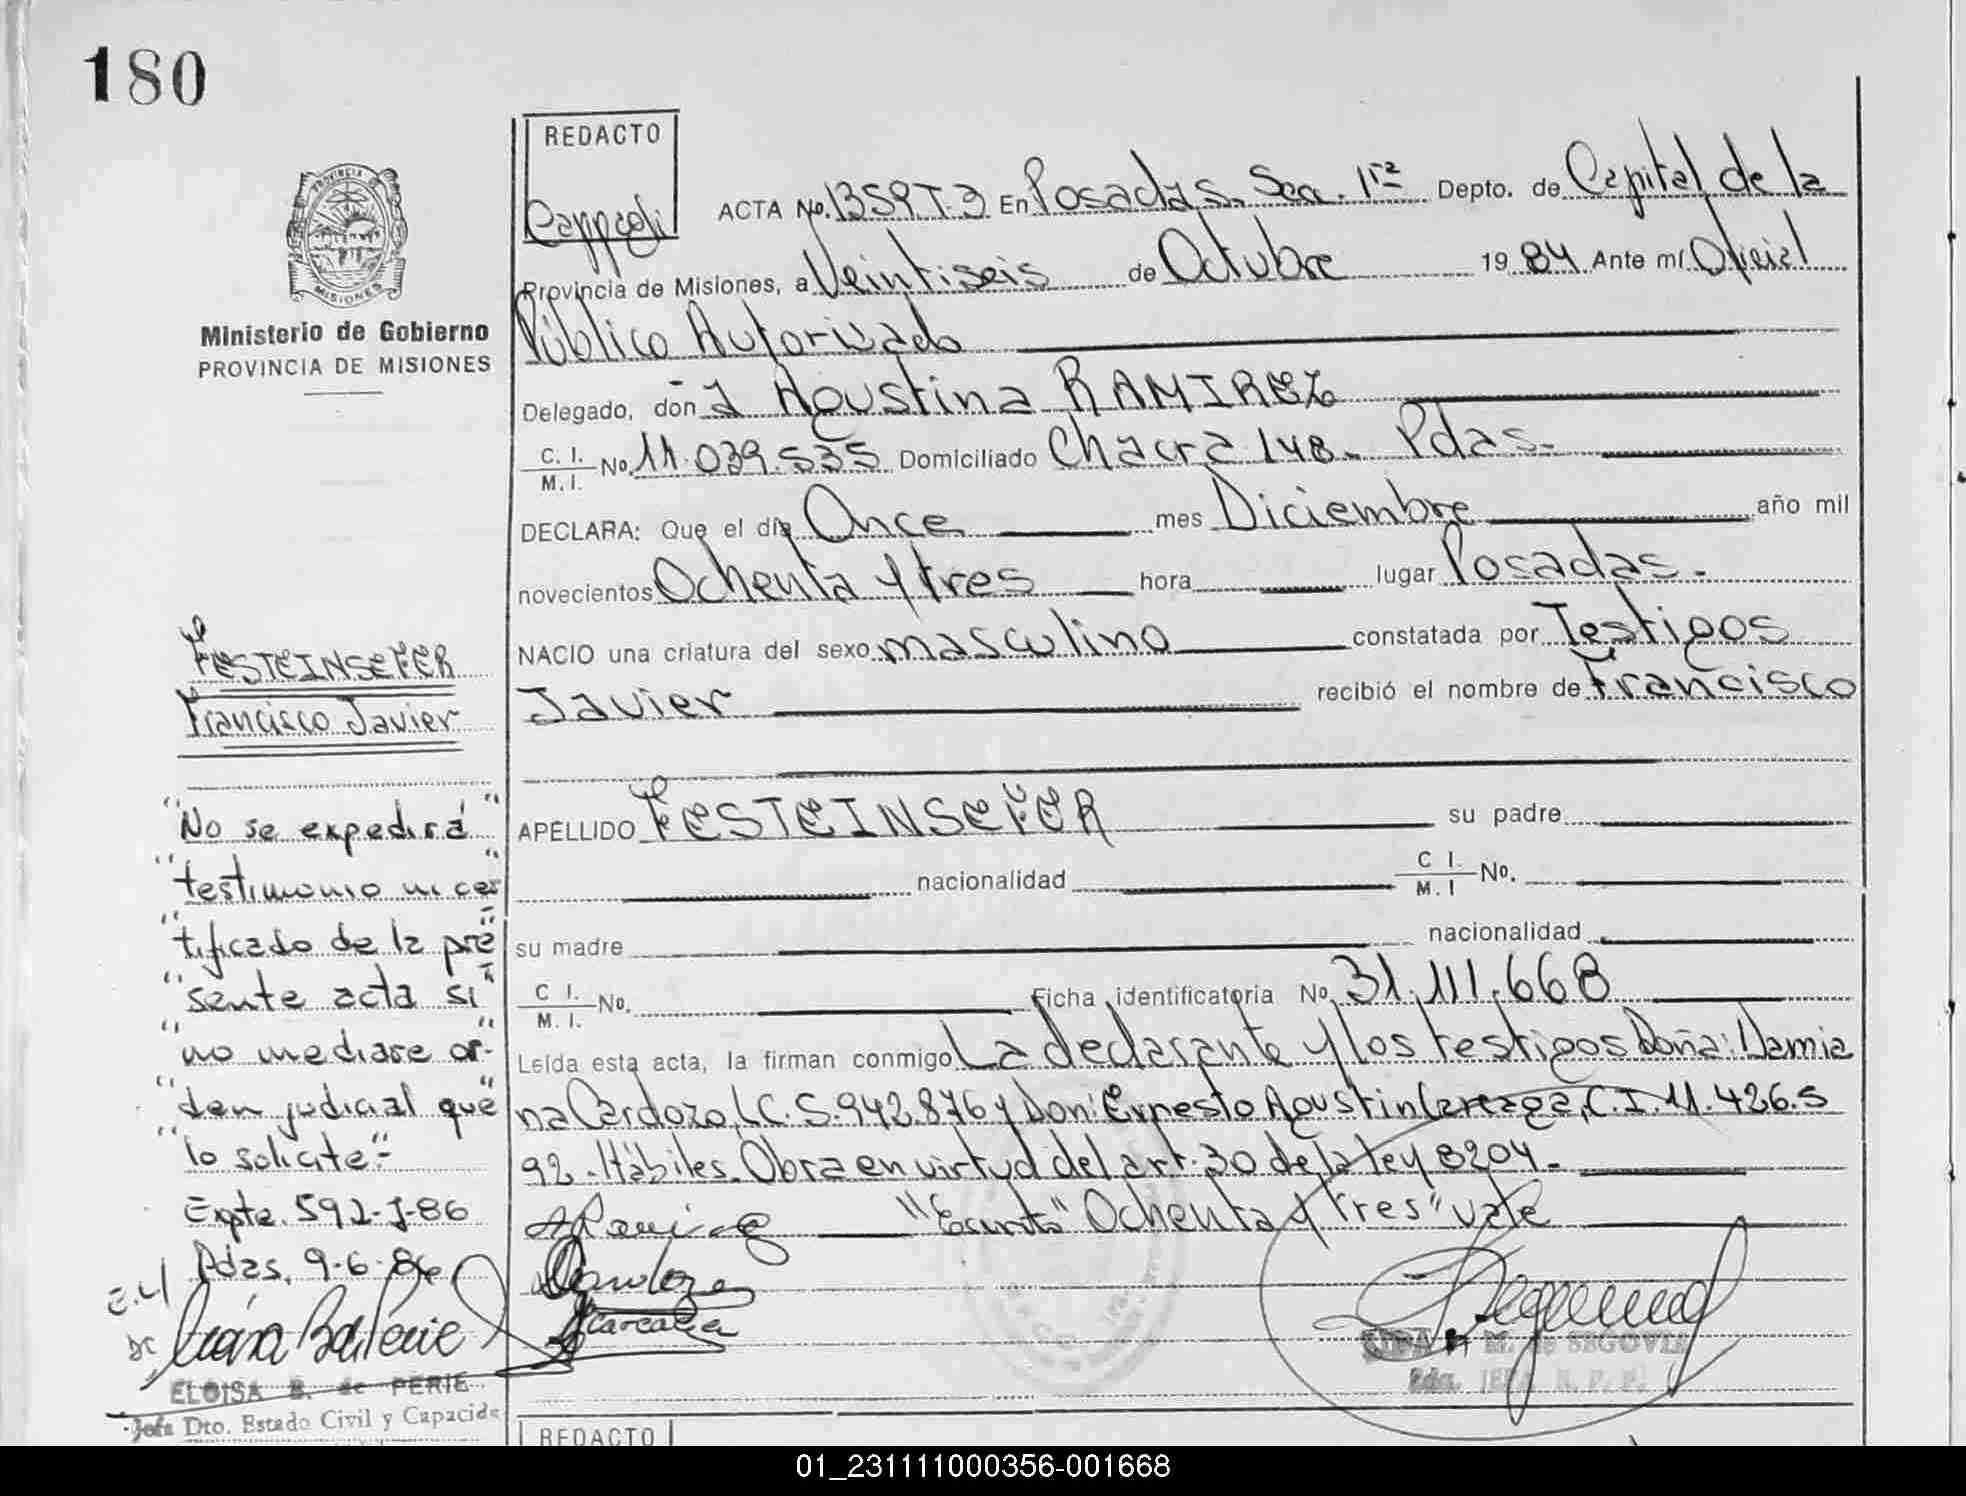 180
REDACTO
PROVINCIA
MISIONES
Ministerio de Gobierno
PROVINCIA DE MISIONES
ACTA No. 1359 T.3 En Posadas. Sec. 1ra Depto. de Capital de la
Provincia de Misiones, a Veintiseis de Octubre 19 84 Ante mí Oficial
Público Autorizado
Delegado, don a Agustina RAMIREZ
C. I.
M. I. No. 11.039.535 Domiciliado Chacra 148. Pdas.
DECLARA: Que el día Once mes Diciembre año mil
novecientos Ochenta y tres hora lugar Posadas.
NACIO una criatura del sexo masculino constatada por Testigos
recibió el nombre de Francisco
Javier
APELLIDO FESTEINSEFER su padre
nacionalidad C I. M. I No.
su madre nacionalidad
C I. M. I. No. Ficha identificatoria No. 31.111.668
Leída esta acta, la firman conmigo La declarante y los testigos Doña: Damia
na Cardozo, LC. 5.942.876 y Don: Ernesto Agustin C.I. 11.426.5
92. Hábiles. Obra en virtud del art. 30 de la ley 8204.
"Ochenta y tres" vale
M. de SEGOVIA
FESTEINSEFER
Francisco Javier
"No se expedirá"
"testimonio ni cer"
"tificado de la pre"
"sente acta si"
"no mediare or-"
"den judicial que"
"lo solicite"-
Expte. 592-J-86
Pdas, 9-6-86
ELOISA B. de PERIE
Jefa Dto. Estado Civil y Capacida
REDACTO
01_231111000356-001668